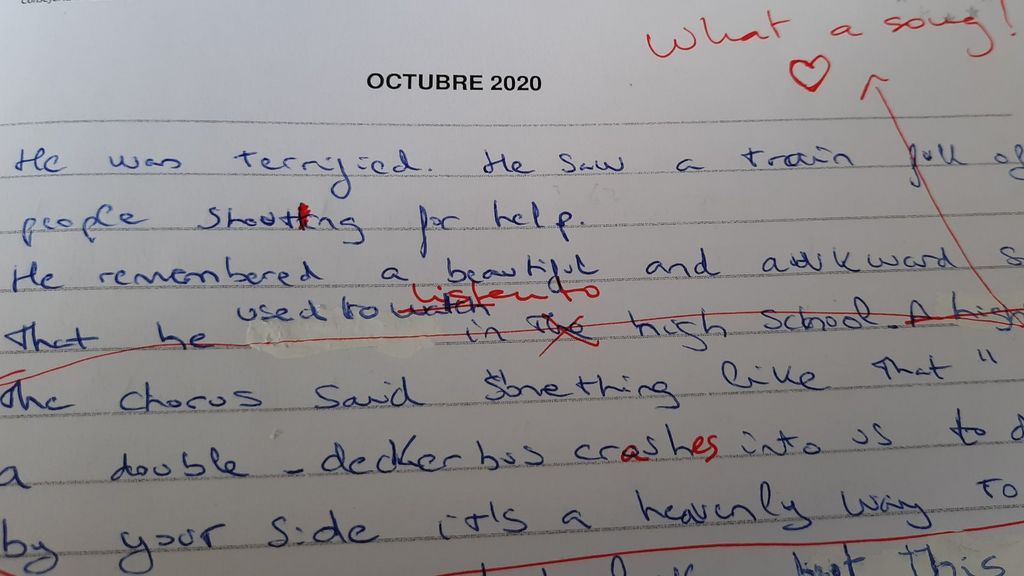 What a song!
OCTUBRE 2020
He was terrified. He saw a train full of
people shouting for help.
He remembered a beautiful and awkward s
listen to
used to watch
That he in the high school. A high
The chorus said something like that "
a double-decker bus crashes into us to d
by your side it's a heavenly way To
but This